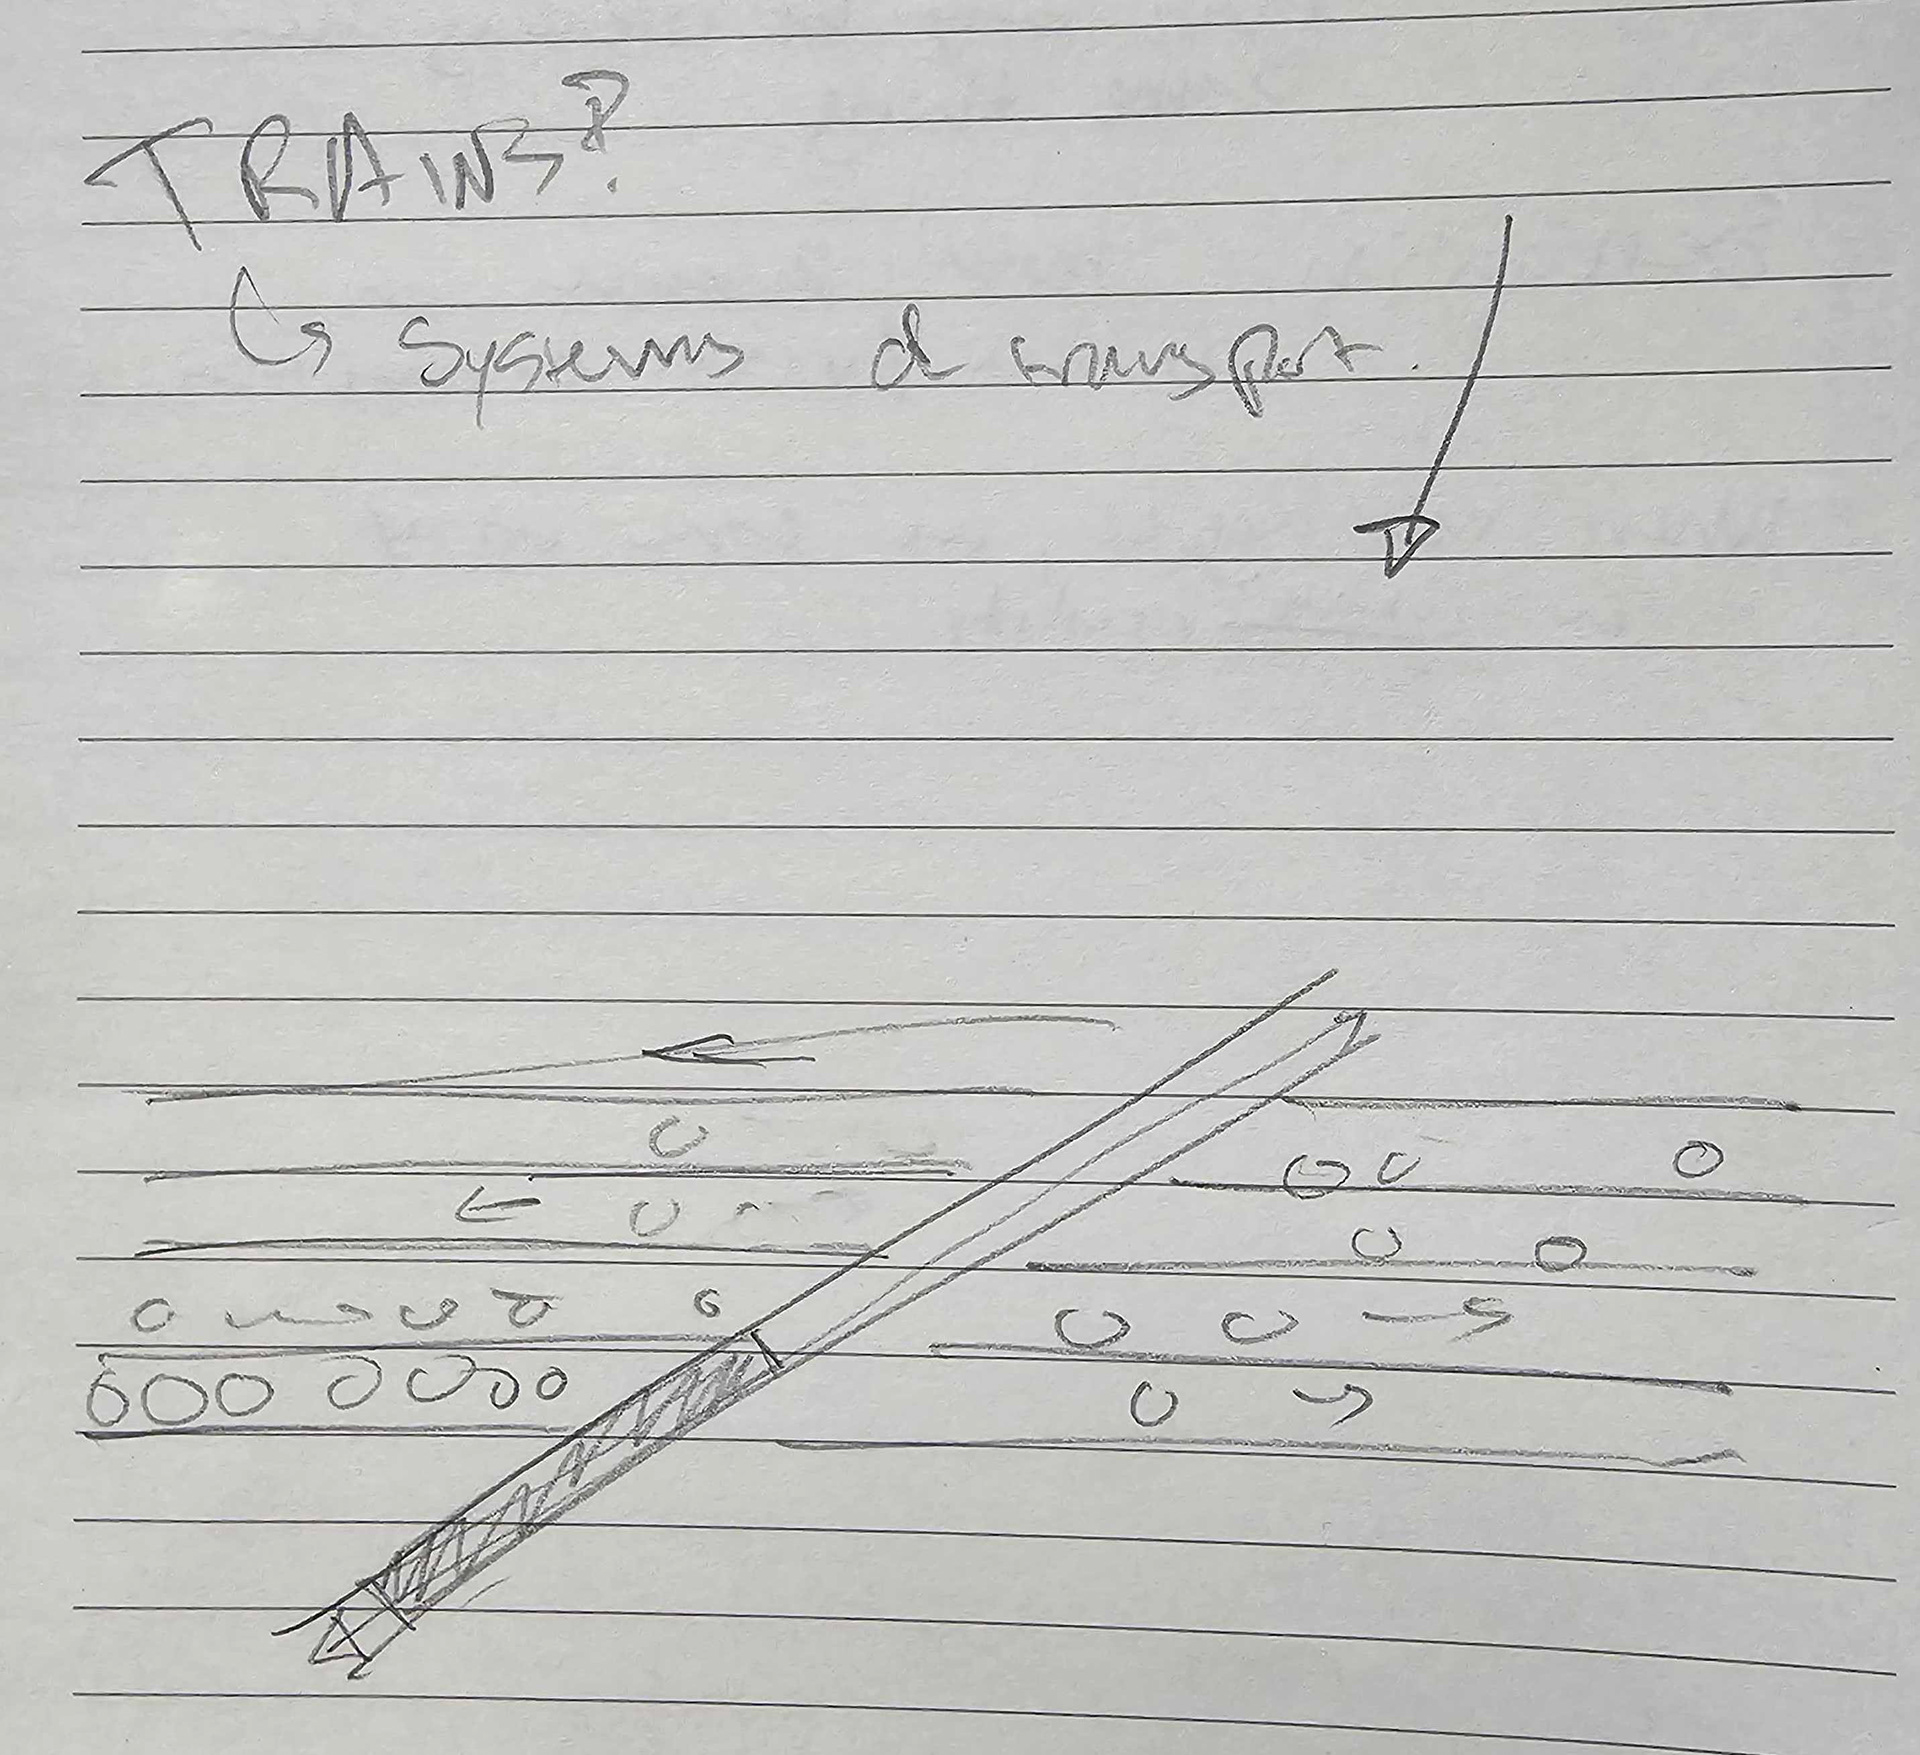 TRAINS?
↳ Systems of transport.